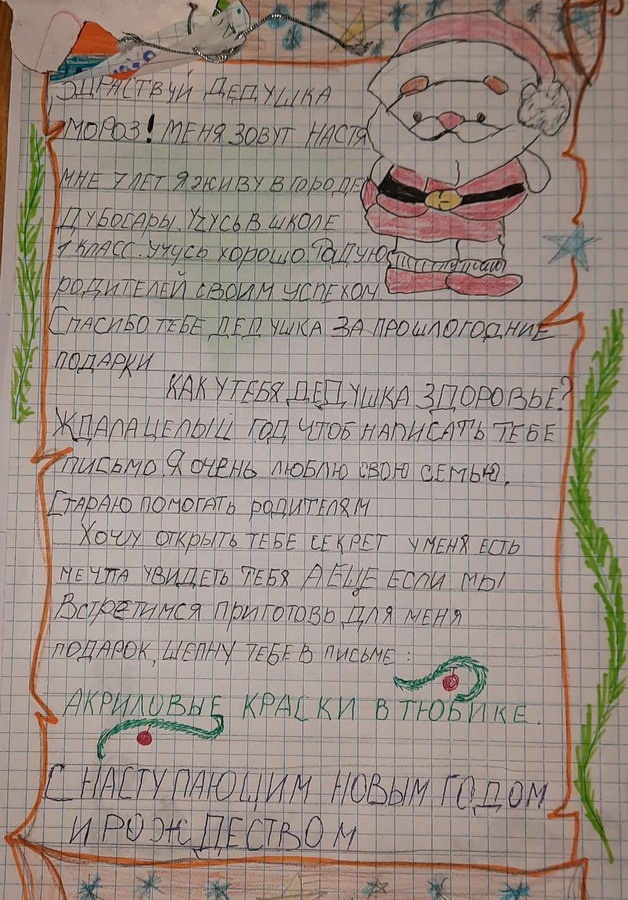 ЗДРАСТВУЙ ДЕДУШКА
МОРОЗ! МЕНЯ ЗОВУТ НАСТЯ
МНЕ 7 ЛЕТ Я ЖИВУ В ГОРОДЕ
ДУБОСАРЫ. УЧУСЬ В ШКОЛЕ
1 КЛАСС. УЧУСЬ ХОРОШО. РАДУЮ
РОДИТЕЛЕЙ СВОИМ УСПЕХОМ
СПАСИБО ТЕБЕ ДЕДУШКА ЗА ПРОШЛОГОДНИЕ
ПОДАРКИ
КАК У ТЕБЯ ДЕДУШКА ЗДОРОВЬЕ?
ЖДАЛА ЦЕЛЫЙ ГОД ЧТОБ НАПИСАТЬ ТЕБЕ
ПИСЬМО. Я ОЧЕНЬ ЛЮБЛЮ СВОЮ СЕМЬЮ.
СТАРАЮ ПОМОГАТЬ РОДИТЕЛЯМ
ХОЧУ ОТКРЫТЬ ТЕБЕ СЕКРЕТ У МЕНЯ ЕСТЬ
МЕЧТА УВИДЕТЬ ТЕБЯ А ЕЩЕ ЕСЛИ МЫ
ВСТРЕТИМСЯ ПРИГОТОВЬ ДЛЯ МЕНЯ
ПОДАРОК, ШЕПНУ ТЕБЕ В ПИСЬМЕ:
АКРИЛОВЫЕ КРАСКИ В ТЮБИКЕ.
С НАСТУПАЮЩИМ НОВЫМ ГОДОМ
И РОЖДЕСТВОМ